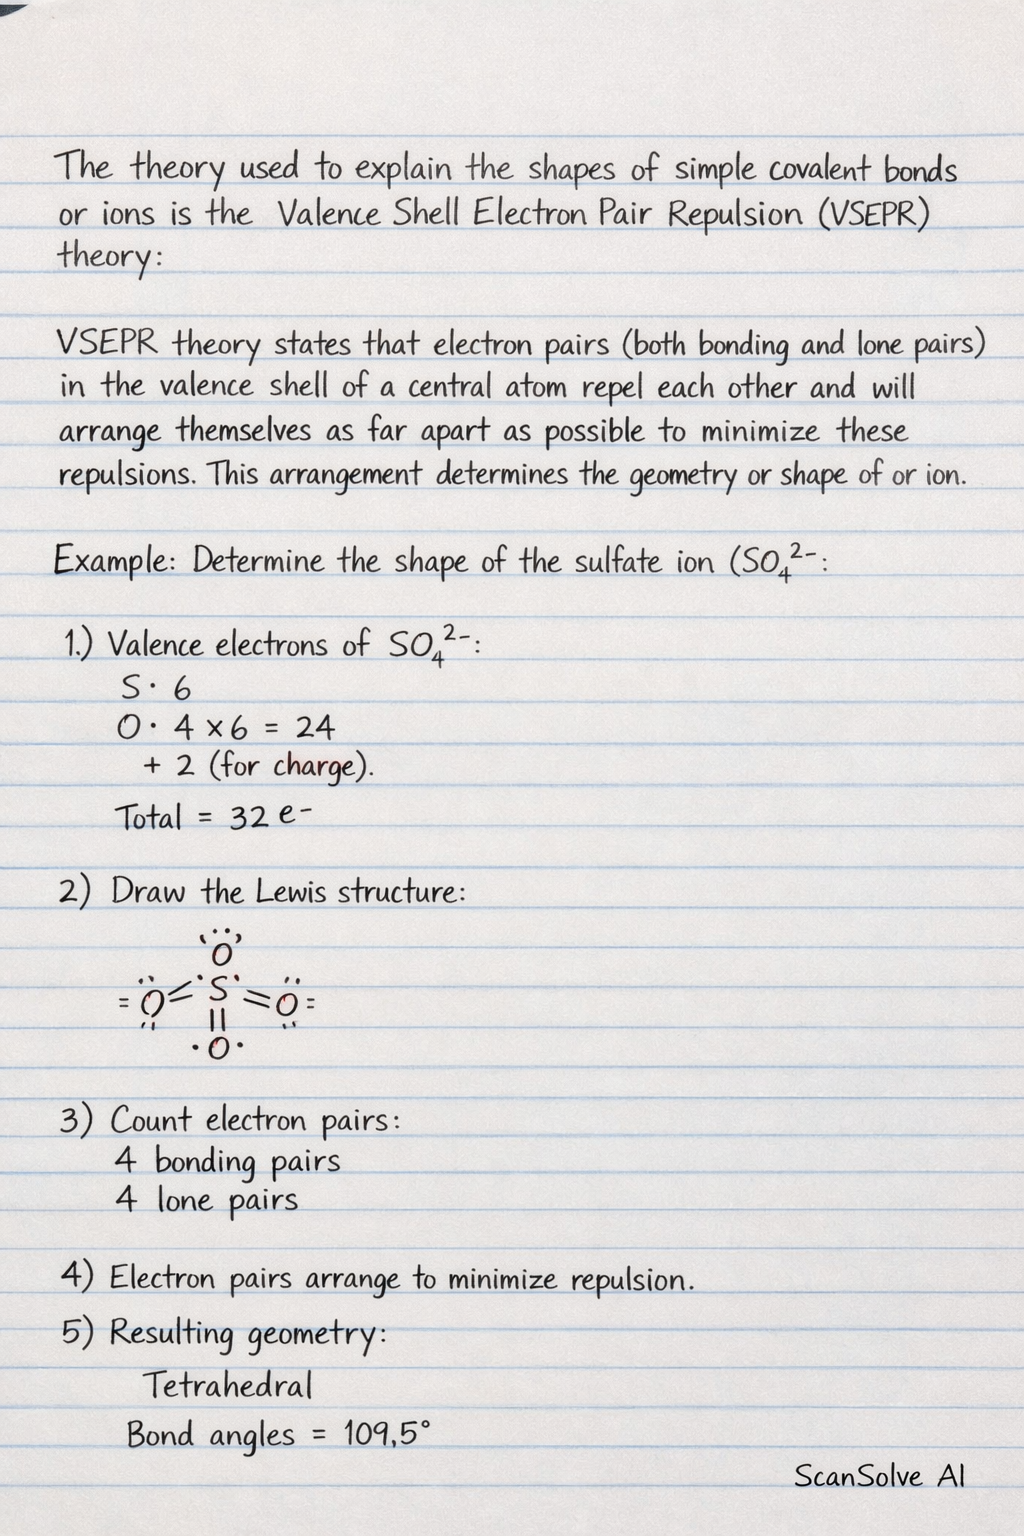 The theory used to explain the shapes of simple covalent bonds
or ions is the Valence Shell Electron Pair Repulsion (VSEPR)
theory:
VSEPR theory states that electron pairs (both bonding and lone pairs)
in the valence shell of a central atom repel each other and will
arrange themselves as far apart as possible to minimize these
repulsions. This arrangement determines the geometry or shape of or ion.
Example: Determine the shape of the sulfate ion (SO₄²⁻:
1.) Valence electrons of SO₄²⁻:
S· 6
O· 4 × 6 = 24
+ 2 (for charge).
Total = 32 e⁻
2) Draw the Lewis structure:
O
S
O O
O
3) Count electron pairs:
4 bonding pairs
4 lone pairs
4) Electron pairs arrange to minimize repulsion.
5) Resulting geometry:
Tetrahedral
Bond angles = 109,5°
ScanSolve AI